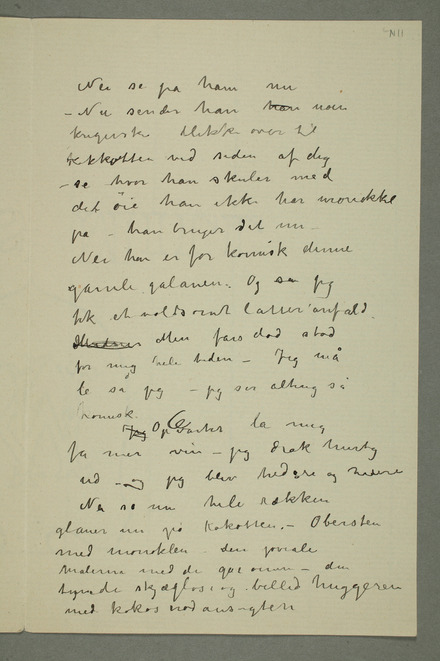 N11
Nei se på ham nu
– Nu sender han han
blikke over til
kokotten ved siden af dig
– se hvor han skuler med
det øie han ikke har monokkel
på – han bruger det nu –
Nei han er for komisk denne
gamle galanen. Og så jeg
fik et voldsomt latteranfald.
Men fars død stod
for mig hele tiden – Jeg må
le sa jeg – jeg ser alting så
komisk.
Jeg la mig
få mer vin – jeg drak hurtig
ud – og jeg blev hedere og
Nå se nu hele rækken
glaner nu på kokotten. – Obersten
med monoklen den joviale
maleren med de – den
tynde skjægløse og billedhuggeren
med kokosnødansigten